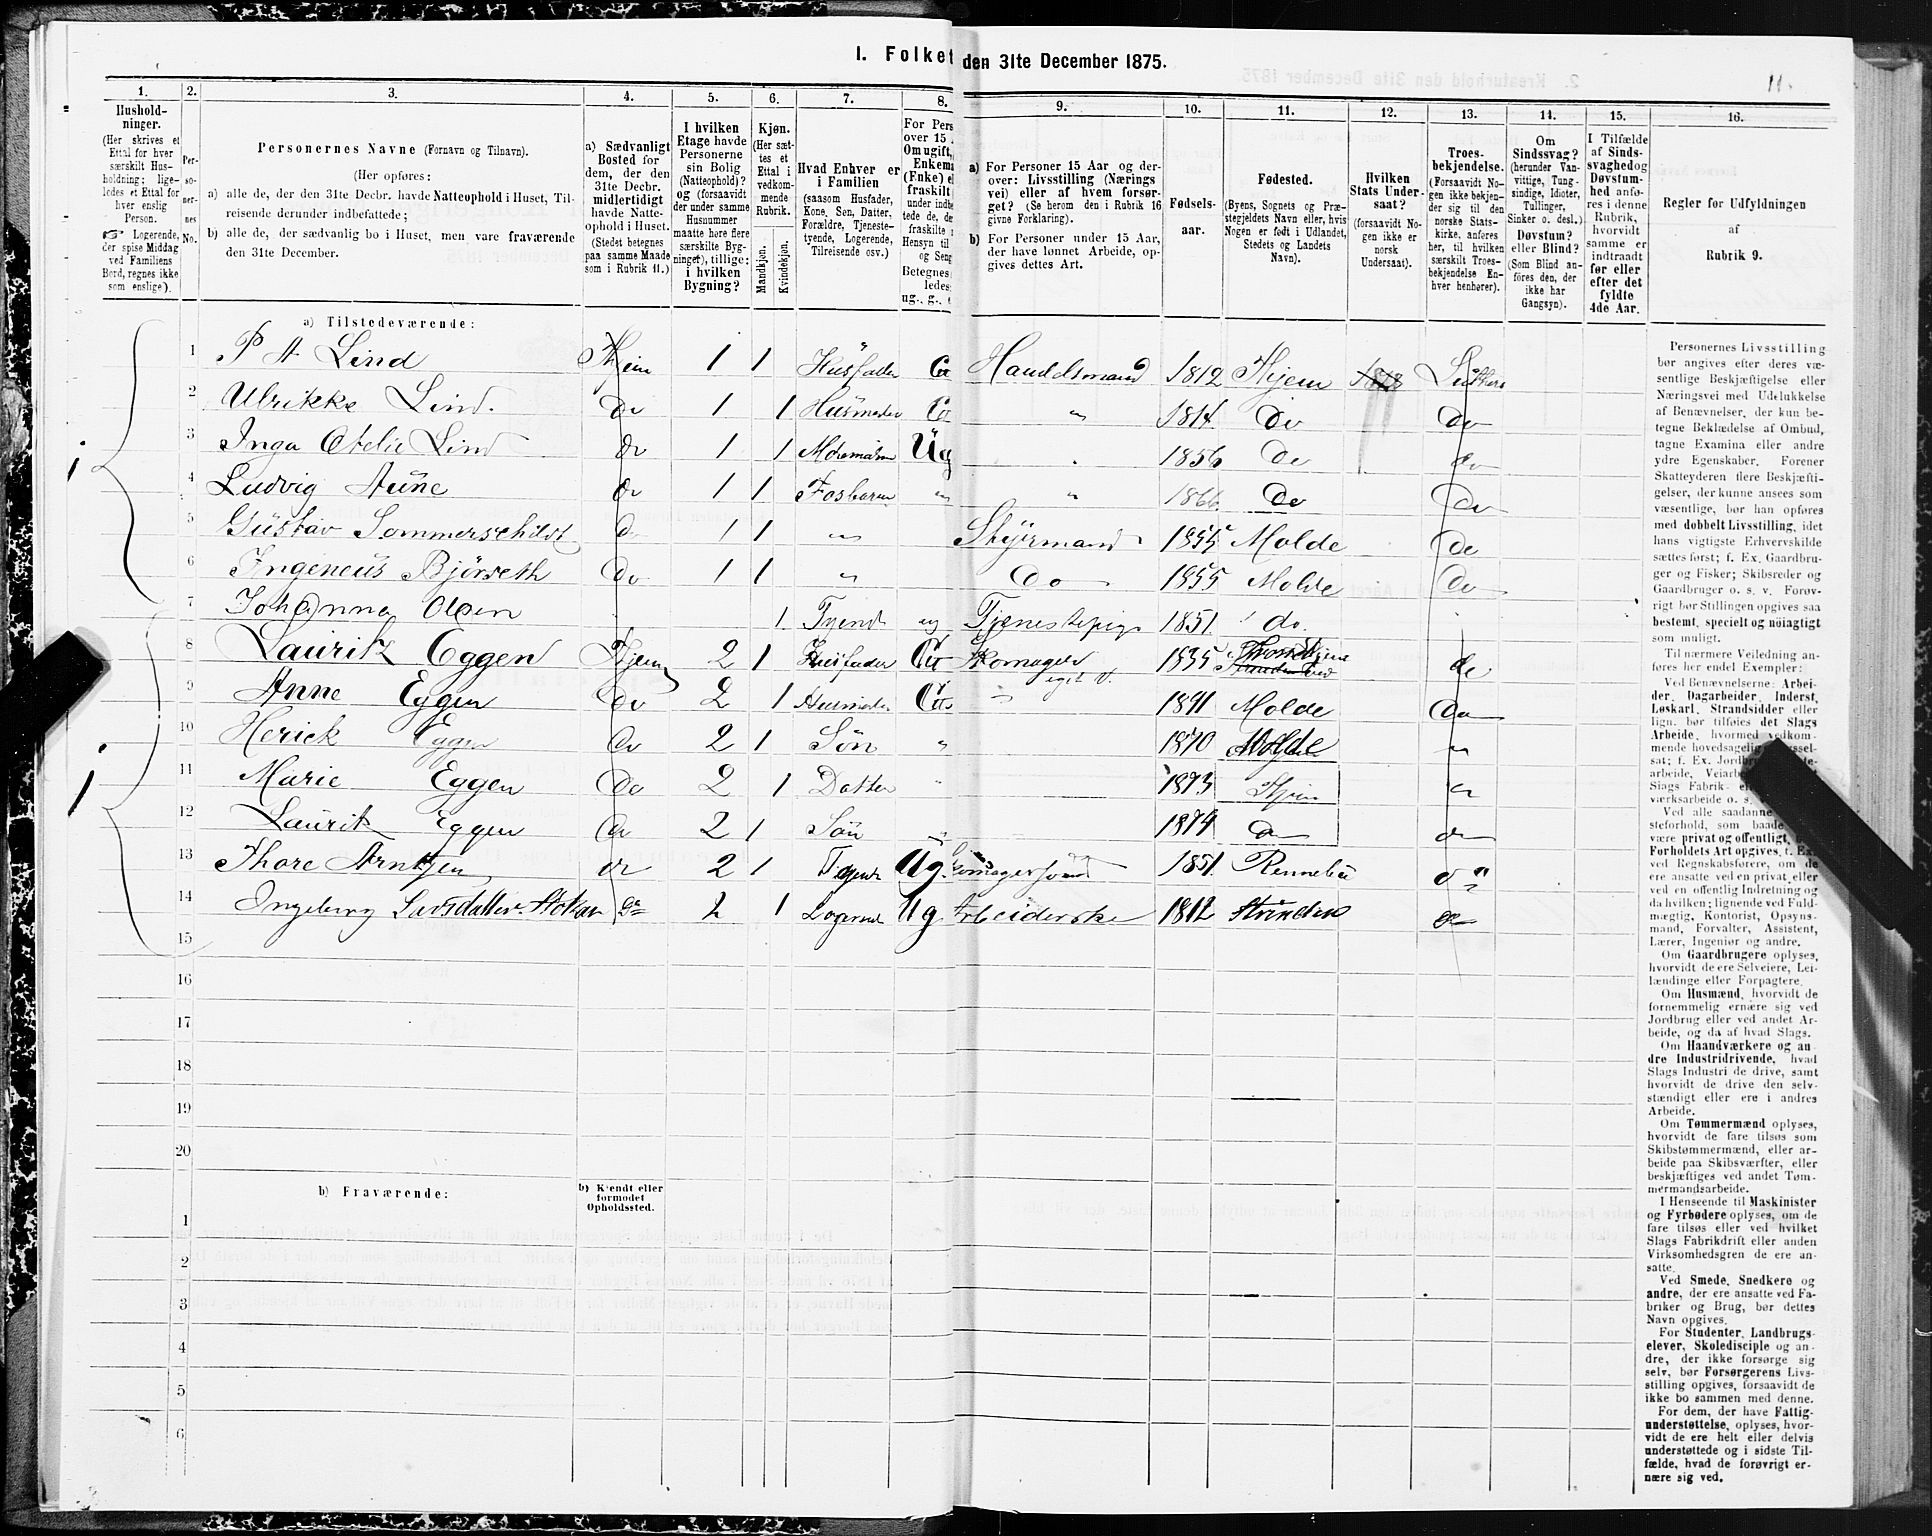 I. Folket den 31te December 1875.
11.
1. 2. 3. 4. 5. 6. 7. 8. 9. 10. 11. 12. 13. 14. 15. 16.
Hushold-
ninger.
(Her skrives et
Ettal for hver
særskilt Hus-
holdning; lige-
ledes et Ettal for
hver enslig
Person.
☞ Logerende,
der spise Middag
ved Familiens
Bord, regnes ikke
som enslige).
Per-
so-
ner-
nes
No.
Personernes Navne (Fornavn og Tilnavn).
(Her opføres:
a) alle de, der den 31te Decbr. havde Natteophold i Huset, Til-
reisende derunder indbefattede;
b) alle de, der sædvanlig bo i Huset, men vare fraværende
den 31te December.
a) Sædvanligt
Bosted for
dem, der den
31te Decbr.
midlertidigt
havde Natte-
ophold i Huset.
(Stedet betegnes
paa samme Maade
som i Rubrik 11.)
I hvilken
Etage havde
Personerne
sin Bolig
(Natteophold)?
og (forsaavidt
der under samme
Husnummer
maatte høre flere
særskilte Byg-
ninger), tillige:
i hvilken
Bygning?
Kjøn.
(Her sæt-
tes et
Ettal i
vedkom-
mende
Rubrik.
Mandkjøn.
Kvindekjøn.
Hvad Enhver er
i Familien
(saasom Husfader,
Kone, Søn, Datter,
Forældre, Tjeneste-
tyende, Logerende,
Tilreisende osv.)
For Pers
over 15
Om ugift,
Enkem
(Enke) e
fraskilt
under indb
tede de,
fraskilte
Hensyn til
og Seng
Betegnes
ledes:
ug., g., e
a) For Personer 15 Aar og der-
over: Livsstilling (Nærings
vei) eller af hvem forsør-
get? (Se herom den i Rubrik 16
givne Forklaring).
b) For Personer under 15 Aar,
der have lønnet Arbeide, op-
gives dettes Art.
Fødsels-
aar.
Fødested.
(Byens, Sognets og Præ-
stegjeldets Navn eller, hvis
Nogen er født i Udlandet,
Stedets og Landets
Navn).
Hvilken
Stats Under-
saat?
(forsaavidt No-
gen ikke er
norsk
Undersaat).
Troes-
bekjendelse.
(Forsaavidt No-
gen ikke bekjen-
der sig til den
norske Stats-
kirke, anføres
her, til hvilken
særskilt Troes-
bekjendelse En-
hver henhører).
Om
Sindssvag?
(herunder Van-
vittige, Tung-
sindige, Idioter,
Tullinger,
Sinker o. desl.).
Døvstum?
eller Blind?
(Som Blind an-
føres den, der
ikke har
Gangsyn).
I Tilfælde
af Sinds-
svaghed og
Døvstum-
hed anfø-
res i denne
Rubrik,
hvorvidt
samme er
indtraadt
før eller
efter det
fyldte
4de Aar.
Regler før Udfyldningen
af
Rubrik 9.
a) Tilstedeværende:
1 P A Lind Hjem 1 1 Husfader G Handelsmand 1812 Hjem Luthers
2 Ulrikke Lind. Do 1 1 Husmoder G " 1814 Do Do
3 Inga Otelie Lind do 1 1 Ug 1856 Do do
4 Ludvig Aune do 1 1 Fosbarn " " 1866 Do Do
5 Gustav Sommerschildt Do 1 1 " Styrmand 1855 Molde Do
6 Ingeneus Bjørseth Do 1 1 " Do 1855 Molde Do
7 Johanna Olsen 1 Tyend ug Tjenestepige 1851 do.
8 Lauritz Eggen Hjem 2 1 Husfader G Skomager eget V. 1835 Throndhjem do
9 Anne Eggen Do 2 1 Husmoder G " 1841 Molde Do
10 Herick Eggen Do 2 1 Søn " 1870 Molde "
11 Marie Eggen Do 2 1 Datter " 1873 Hjem "
12 Laurits Eggen Do 2 1 Søn " 1874 do do
13 Thore Arntsen do 2 1 Tyende Ug. Skomagersvend 1851 Rennebu do
14 Ingeborg Larsdatter Do 2 1 Logerende Ug Arbeiderske 1812 Strinden do
15
16
17
18
19
20
b) Fraværende:
b) Kjendt eller
formodet
Opholdssted.
1
2
3
4
5
6
Personernes Livsstilling
bør angives efter deres væ-
sentlige Beskjæftigelse eller
Næringsvei med Udelukkelse
af Benævnelser, der kun be-
tegne Beklædelse af Ombud,
tagne Examina eller andre
ydre Egenskaber. Forener
Skatteyderen flere Beskjæfti-
gelser, der kunne ansees som
væsentlige, bør han opføres
med dobbelt Livsstilling, idet
hans vigtigste Erhvervskilde
sættes først; f. Ex. Gaardbru-
ger og Fisker; Skibsreder og
Gaardbruger o. s. v. Forøv-
rigt bør Stillingen opgives saa
bestemt, specielt og nøiagtigt
som muligt.
Til nærmere Veiledning an-
føres her endel Exempler:
Ved Benævnelserne: Arbei-
der, Dagarbeider, Inderst,
Løskarl, Strandsidder eller
lign. bør tilføies det Slags
Arbeide, hvormed vedkom-
mende hovedsagelig
sat; f. Ex.
arbeide,
Slags Fabrik-
værksarbeide o. s.
Ved alle saadanne
steforhold, som baade
være privat og offentlig,
Forholdets Art opgives, f. Ex.
ved Regnskabsførere, om de
ere ansatte ved en privat eller
ved en offentlig Indretning og
da hvilken; lignende ved Fuld-
mægtig, Kontorist, Opsyns-
mand, Forvalter, Assistent,
Lærer, Ingeniør og andre.
Om Gaardbrugere oplyses,
hvorvidt de ere Selveiere, Lei-
lændinge eller Forpagtere.
Om Husmænd, hvorvidt de
fornemmelig ernære sig ved
Jordbrug eller ved andet Ar-
beide, og da af hvad Slags.
Om Haandværkere og an
dre Industridrivende, hvad
Slags Industri de drive, samt
hvorvidt de drive den selv-
stændigt eller ere i andres
Arbeide.
Om Tømmermænd oplyses,
hvorvidt de fare tilsøs som
Skibstømmermænd, eller ar-
beide paa Skibsværfter, eller
beskjæftiges ved andet Tøm-
mermandsarbeide.
I Henseende til Maskinister
og Fyrbødere oplyses, om de
fare tilsøs eller ved hvilket
Slags Fabrikdrift eller anden
Virksomhedsgren de ere an-
satte.
Ved Smede, Snedkere og
andre, der ere ansatte ved Fa-
briker og Brug, bør dettes
Navn opgives.
For Studenter, Landbrugs-
elever, Skoledisciple og an-
dre, der ikke forsørge sig
selv, bør Forsørgerens Livs-
stilling opgives, forsaavidt de
ikke bo sammen med denne.
For dem, der have Fattig-
understøttelse, oplyses, hvor-
vidt de ere helt eller delvis
understøttede og i sidste Til-
fælde, hvad de forøvrigt er-
nære sig ved.